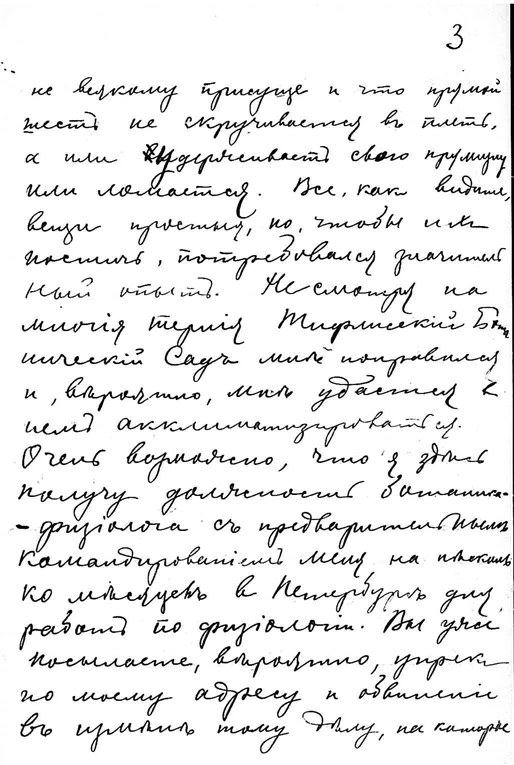 3
не всякому присуще и что прямой
шестъ не скручивается въ плеть,
а или удерживаетъ свою прямизну
или ломается. Все, как видите,
вещи простыя, но, чтобы ихъ
постичь, потребовался значитель
ный опытъ. Не смотря на
многія тернія Тифлисскій Бота
ническій Садъ мнѣ понравился
и, вѣроятно, мнѣ удастся в
немъ акклиматизироваться.
Очень возможно, что я здѣсь
получу должность ботаника-
-физіолога съ предварительнымъ
командированіемъ меня на нѣсколь
ко мѣсяцевъ в Петербургъ для
работъ по физіологіи. Вы уже
посылаете, вѣроятно, упреки
по моему адресу и обвиненіе
въ измѣнѣ тому дѣлу, на которое